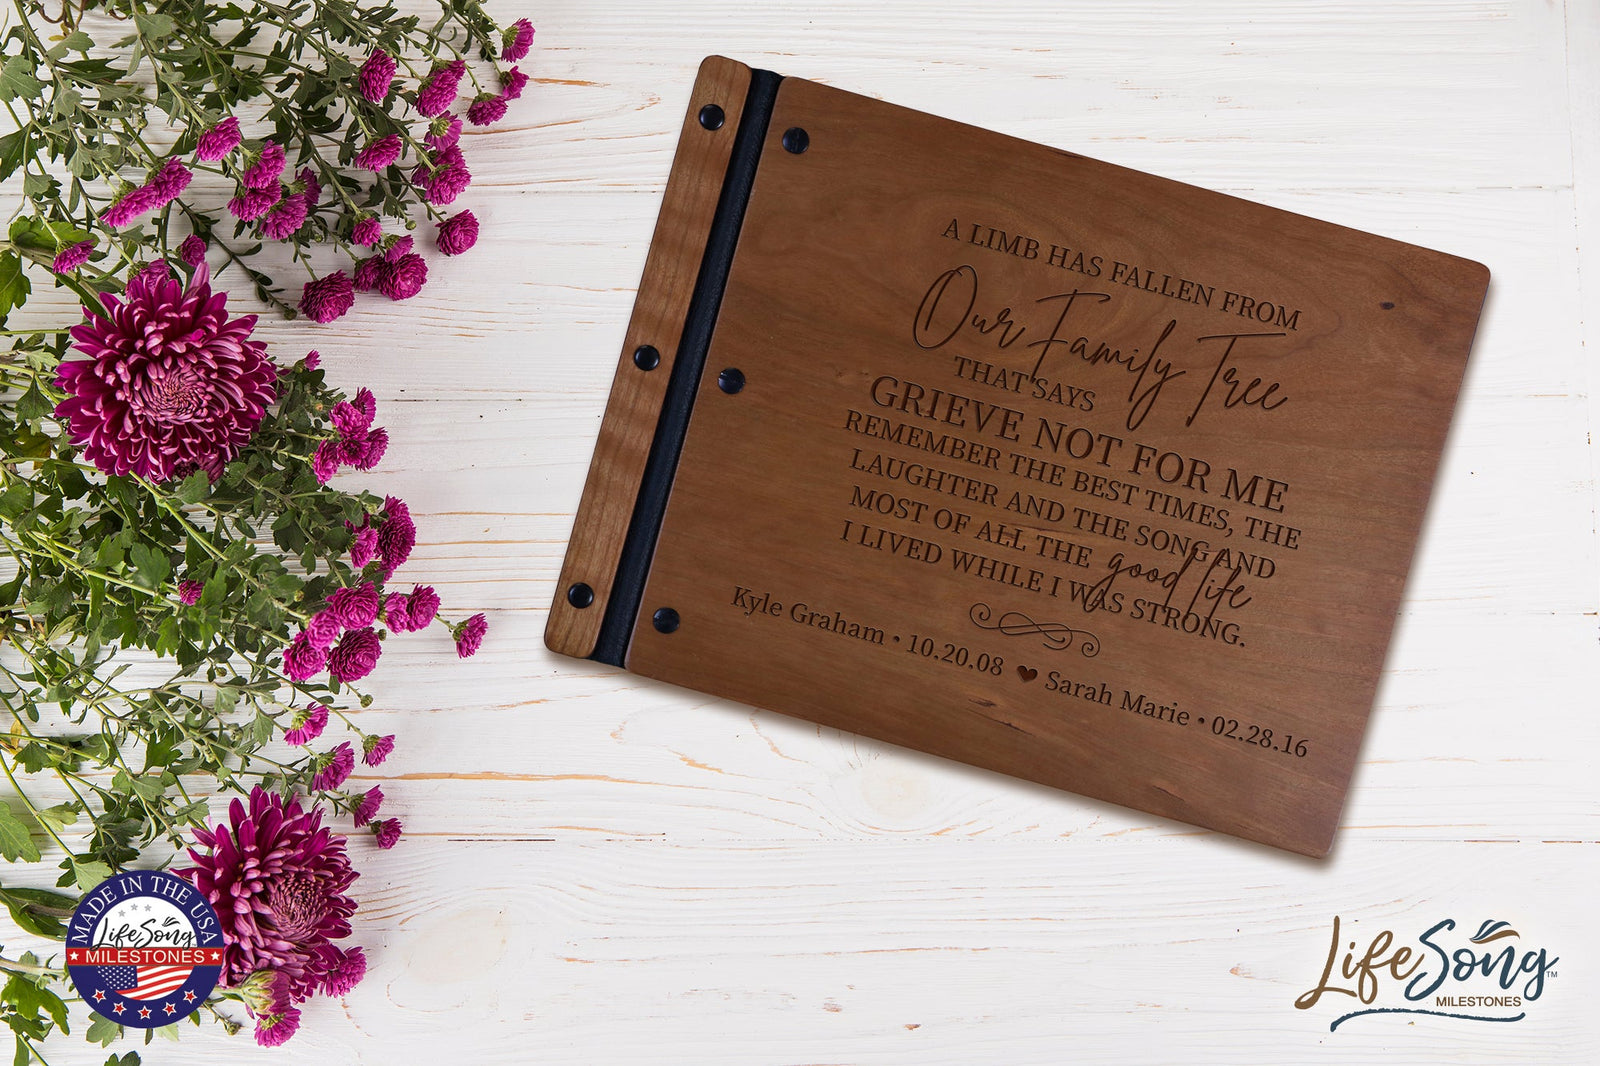 A LIMB HAS FALLEN FROM
Our Family Tree
THAT SAYS
GRIEVE NOT FOR ME
REMEMBER THE BEST TIMES, THE
LAUGHTER AND THE SONG AND
MOST OF ALL THE good life
I LIVED WHILE I WAS STRONG.
Kyle Graham • 10.20.08 ♥ Sarah Marie • 02.28.16
MADE IN THE USA
LifeSong
MILESTONES
LifeSong™
MILESTONES